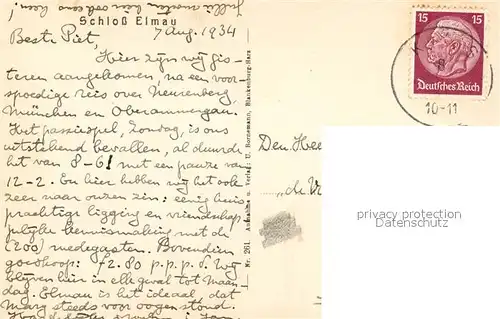 Jullie moeten hier ook eens heen!
Schloß Elmau
7 Aug. 1934
Beste Piet,
Hier zijn wij gis-
teren aangekomen, na een voor-
spoedige reis over Neurenberg,
München en Oberammergau.
Het passiespel, Zondag, is ons
uitstekend bevallen, al duurde
het van 8-6! met een pauze van
12-2. En hier hebben wij het ook
zeer naar onzen zin: eenig huis
prachtige ligging en vriendschap-
pelijke kennismaking met de
(200) medegasten. Bovendien
goedkoop: f2.80 p.p.p.d. Wij
blijven hier in elk geval tot Maan-
dag. Elmau is het ideaal, dat
Marg steeds voor oogen stond.
Nr. 261. Aufnahme u. Verlag: U. Bornemann, Blankenburg-Harz
15 15
Deutsches Reich
10-11
Den Hee
"de V
privacy protection
Datenschutz